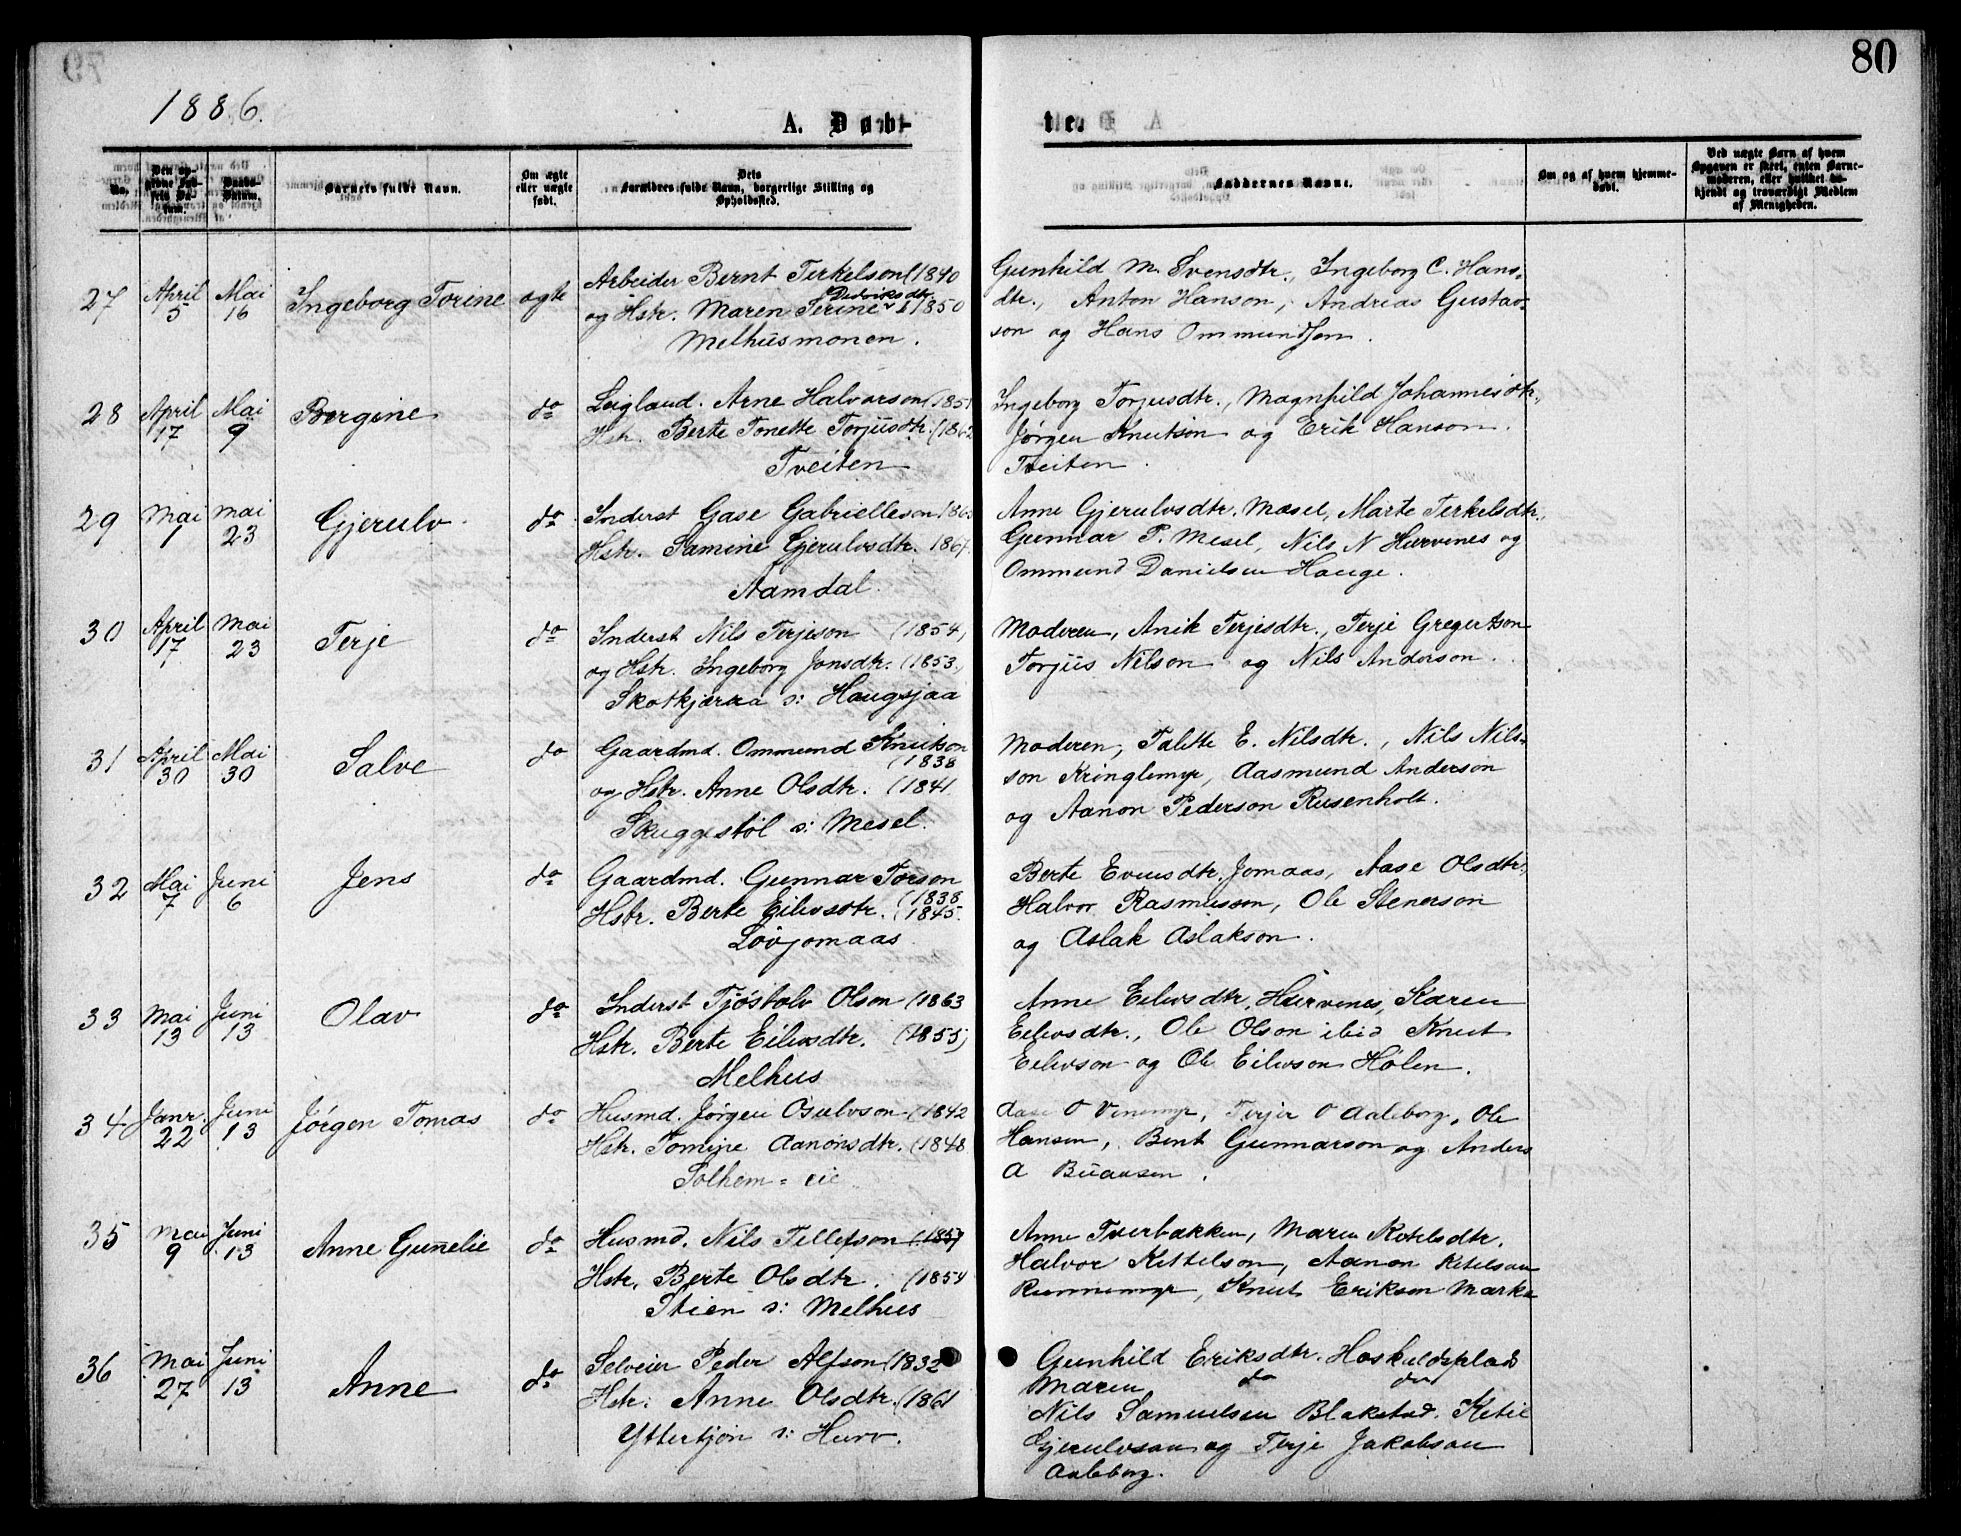 80
1886.
A. Døb-
te.
No.
Barnets fulde Navn.
Om ægte
eller uægte
født.
Dets
Forældres fulde Navn, borgerlige Stilling og
Opholdssted.
Faddernes Navne.
Om og af hvem hjemme-
døbt.
Ved uægte Barn af hvem
Opgaven er skeet, enten Barne-
moderen, eller hvilket be-
kjendt og troværdigt Medlem
af Menigheden.
27 April 5 Mai 16 Ingeborg Torine ægte
Arbeider Bernt Terkelson (1840
Dedriksdtr
og Hstr. Maren Serine 1850
Melhusmonen.
Gunhild M. Svensdtr., Ingeborg C. Hans-
dtr., Anton Hanson, Andreas Gustav-
son og Hans Ommundsen.
28 April 17 Mai 9 Bergine do
Leiglænd. Arne Halvorson (1851
Hstr. Berte Tonette Torjusdtr. (1862
Tveiten
Ingeborg Torjusdtr., Magnhild Johannesdtr.,
Jørgen Knutson og Erik Hanson.
Tveiten.
29 Mai 1 Mai 23 Gjerulv do
Inderst Gase Gabrielleson 186
Hstr. Samine Gjerulvsdtr. 1867.
Aamdal.
Anne Gjerulvsdtr. Mæsel, Marte Terkelsdtr.,
Gunnar P. Mesel, Nils N Hurvenes og
Ommund Danielsen Hauge.
30 April 17 Mai 23 Terje do
Inderst Nils Terjeson (1854)
og Hstr. Ingeborg Jonsdtr. (1853.)
Skotkjærraa s: Haugsjaa
Moderen, Anik Terjesdtr., Terje Gregertson
Torjus Nilson og Nils Anderson.
31 April 30 Mai 30 Salve do
Gaardmd. Ommund Knutson
(1838
og Hstr. Anne Olsdtr. (1841
Skuggestøl s: Mesel.
Moderen, Talette E. Nilsdtr., Nils Nils-
son Kringlemyr, Aasmund Anderson
og Aanon Pederson Rusenholt.
32 Mai 7 Juni 6 Jens do
Gaardmd. Gunnar Torson
(1838
Hstr. Berte Eilevsdtr. (1845.
Løvjomaas
Berte Evensdtr. Jomaas, Aase Olsdtr.,
Halvor Rasmusson, Ole Stenerson
og Aslak Aslakson.
33 Mai 13 Juni 13 Olav do
Inderst Tjøstolv Olson (1863
Hstr. Berte Eilevsdtr. (1855)
Melhus
Anne Eilevsdtr. Hurvenes, Karen
Eilevsdtr., Ole Olson ibid Knut
Eilevson og Ole Eilevson Hølen.
34 Janr. 22 Juni 13 Jørgen Tomas do
Husmd. Jørgen Osulvson (1842
Hstr. Tomine Aanonsdtr. (1848
Solhem = eie
Aase O Venemyr, Terjer O Aaleborg, Ole
Hansen, Bent Gunnarson og Anders
A Buaasen.
35 Mai 9 Juni 13 Anne Gunelie do
Husmd. Nils Tellefson (1857
Hstr. Berte Olsdtr. (1854
Stien s: Melhus
Anne Tverbakken, Maren Ketelsdtr.
Halvor Kettelson, Aanon Ketelsen
Rennemyr, Knut Erikson Marka
36 Mai 27 Juni 13 Anne do
Selveier Peder Alfson (1832
Hstr. Anne Olsdtr. (1861
Yttertjøn s: Hurv.
Gunhild Eriksdtr. Høskuldsplads
Maren do do
Nils Samuelsen Blakstad. Ketil
Gjerulvsen og Terje Jakobsen
Aaleborg.